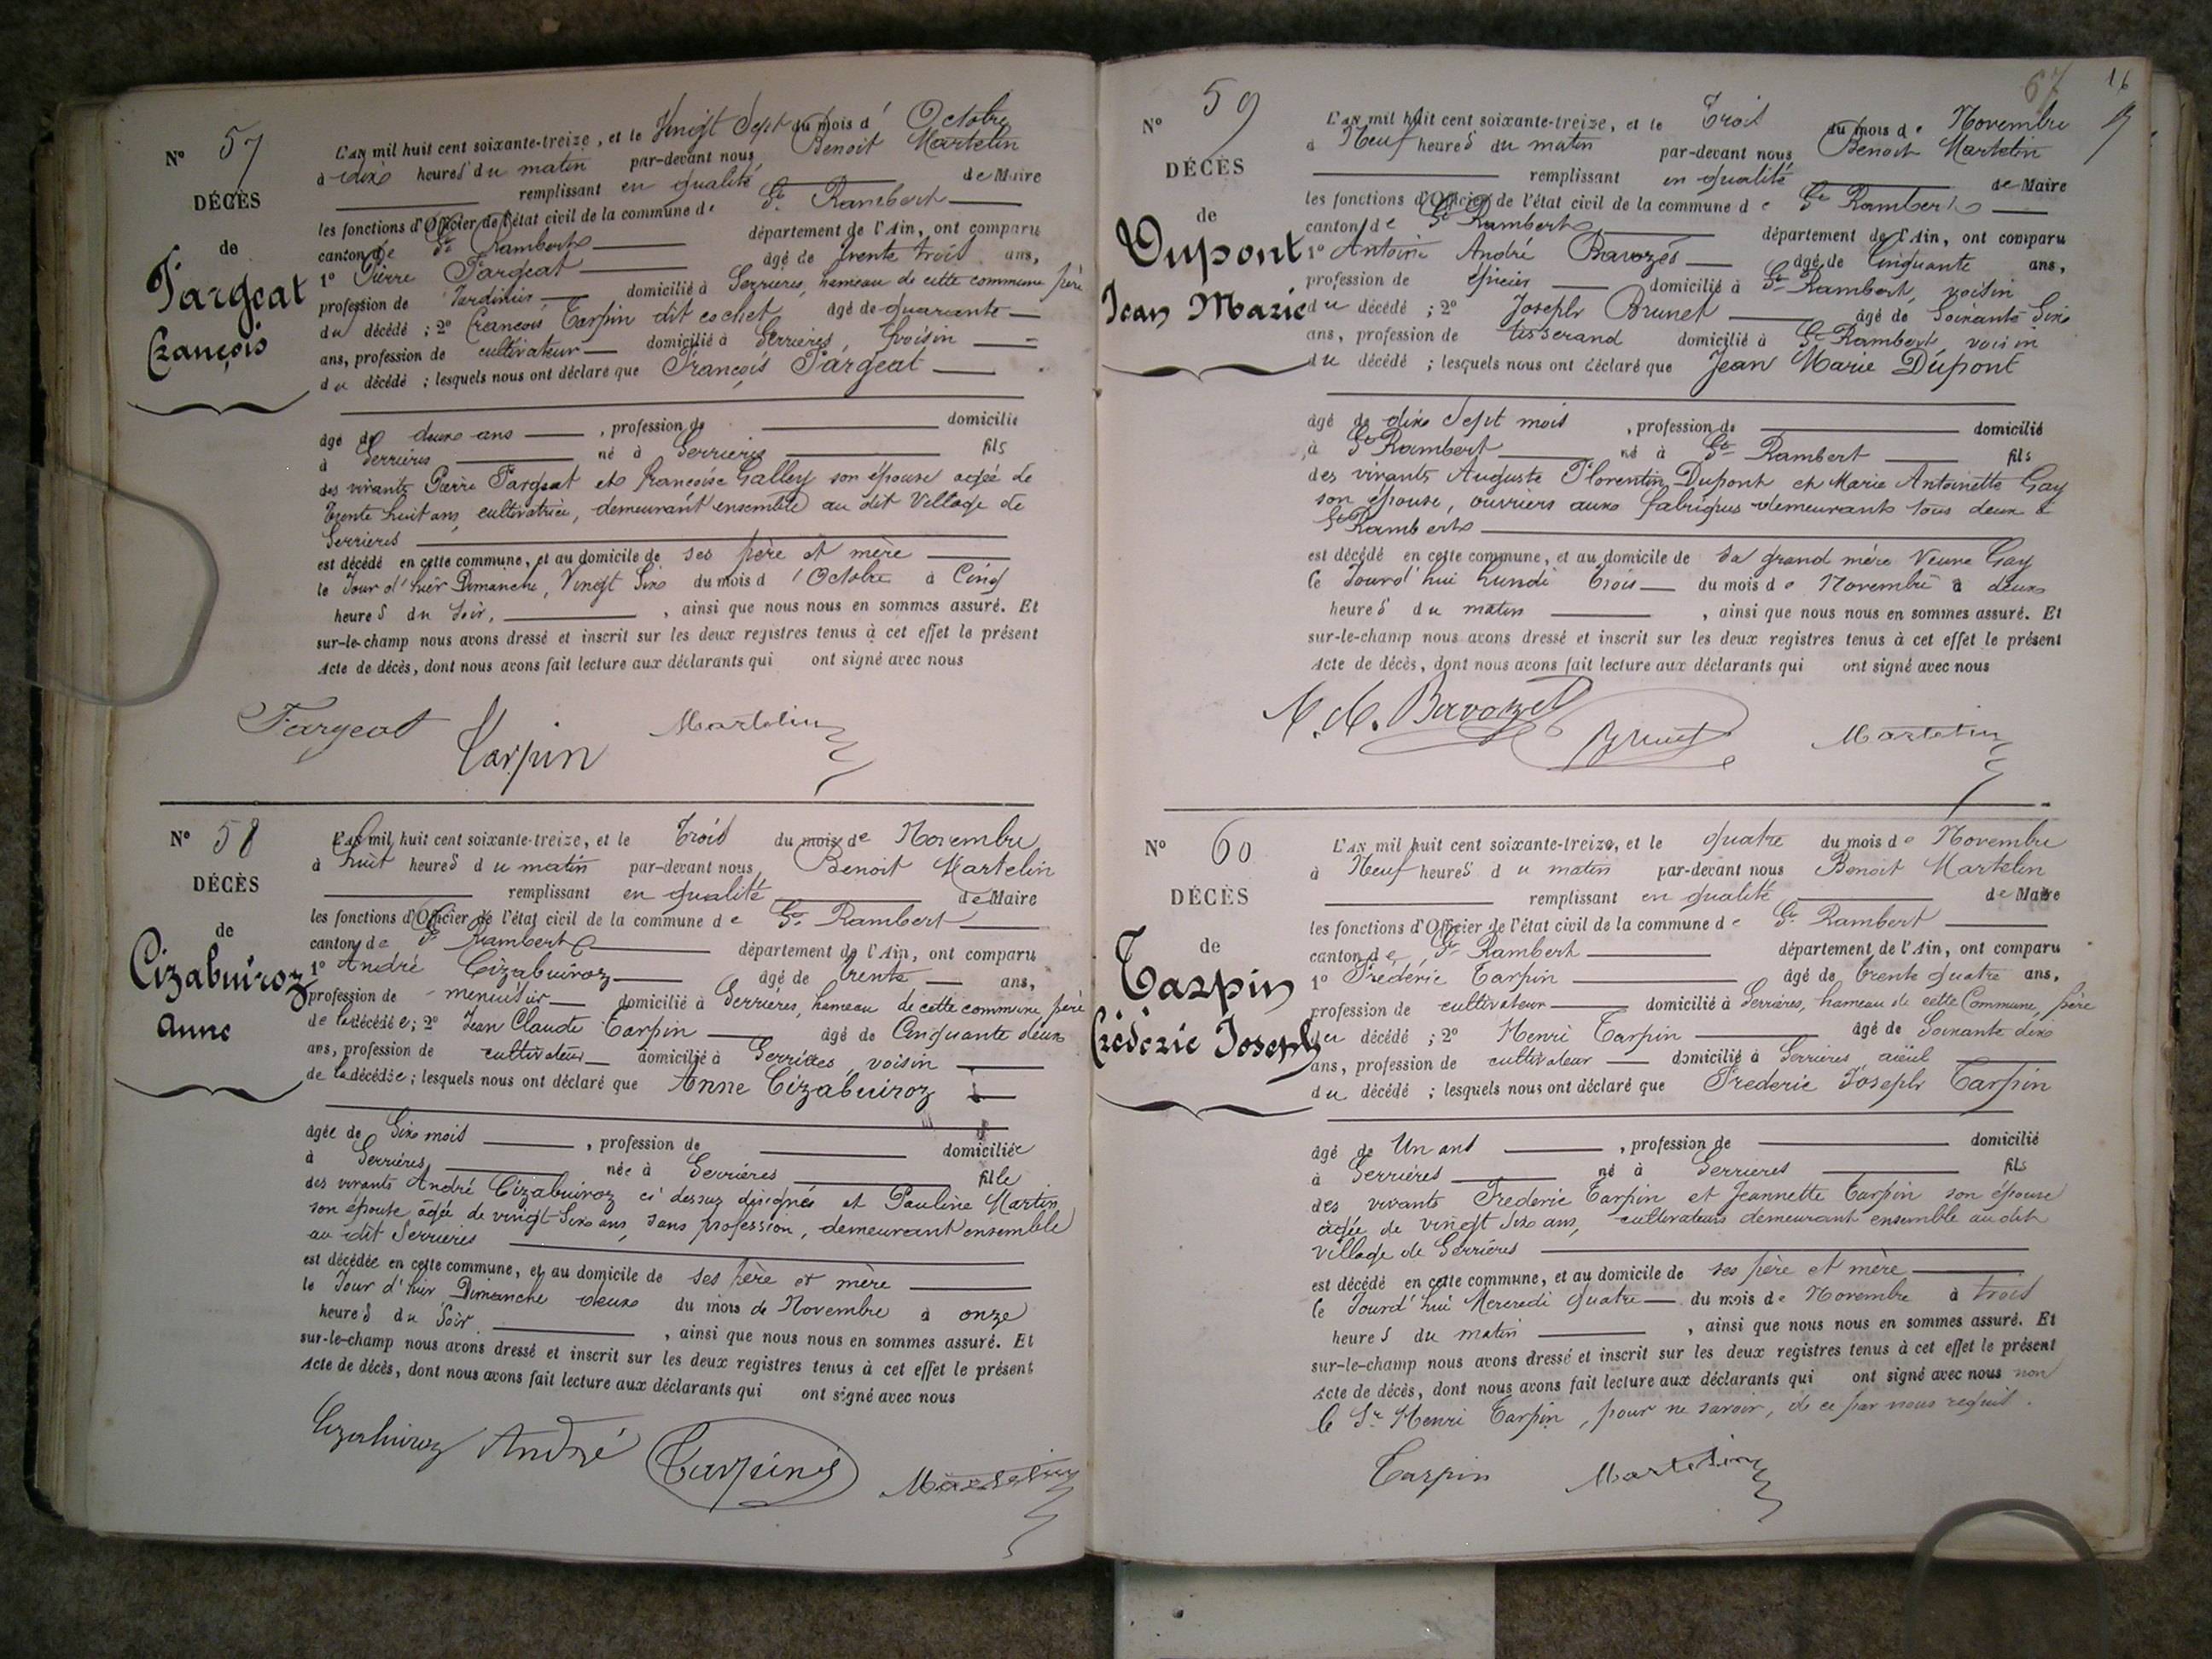 N° 57
DÉCÈS
de
Fargeat
François
L'AN mil huit cent soixante-treize, et le Vingt Sept du mois d' Octobre
à dix heures du matin par-devant nous, Benoit Martelin
remplissant en qualité de Maire
les fonctions d'Officier de l'état civil de la commune de St Rambert
canton de St Rambert département de l'Ain, ont comparu
1° Pierre Fargeat âgé de trente trois ans,
profession de Jardinier domicilié à Serrières, hameau de cette commune père
du décédé ; 2° François Tarpin dit cochet âgé de quarante
ans, profession de cultivateur domicilié à Serrières, voisin
du décédé ; lesquels nous ont déclaré que François Fargeat
âgé de deux ans , profession de domicilié
à Serrières né à Serrières fils
des vivants Pierre Fargeat et françoise Galley son épouse agée de
trente huit ans, cultivatrice, demeurant ensemble au dit Village de
Serrières
est décédé en cette commune, et au domicile de ses père et mère
le Jour d'hier Dimanche, Vingt Six du mois d'Octobre à Cinq
heures du Soir, , ainsi que nous nous en sommes assuré. Et
sur-le-champ nous avons dressé et inscrit sur les deux registres tenus à cet effet le présent
Acte de décès, dont nous avons fait lecture aux déclarants qui ont signé avec nous
Fargeat Tarpin Martelin
N° 58
DÉCÈS
de
Cizabuiroz
Anne
L'AN mil huit cent soixante-treize, et le trois du mois de Novembre
à huit heures du matin par-devant nous, Benoit Martelin
remplissant en qualité de Maire
les fonctions d'Officier de l'état civil de la commune de St Rambert
canton de St Rambert département de l'Ain, ont comparu
1° André Cizabuiroz âgé de trente ans,
profession de menuisier domicilié à Serrières, hameau de cette commune père
de la décédée; 2° Jean Claude Tarpin âgé de Cinquante deux
ans, profession de cultivateur domicilié à Serrières, voisin
de la décédée; lesquels nous ont déclaré que Anne Cizabuiroz
âgée de Six mois , profession de domiciliée
à Serrières, née à Serrières fille
des vivants André Cizabuiroz ci dessus désigné et Pauline Martin,
son épouse âgée de vingt-Six ans, sans profession, demeurant ensemble
au dit Serrières
est décédée en cette commune, et au domicile de ses père et mère
le Jour d'hier Dimanche deux du mois de Novembre à onze
heures du Soir , ainsi que nous nous en sommes assuré. Et
sur-le-champ nous avons dressé et inscrit sur les deux registres tenus à cet effet le présent
Acte de décès, dont nous avons fait lecture aux déclarants qui ont signé avec nous
Cizabuiroz André Tarpin Martelin
67 16
N° 59
DÉCÈS
de
Dupont
Jean Marie
L'AN mil huit cent soixante-treize, et le trois du mois de Novembre
à Neuf heures du matin par-devant nous, Benoit Martelin
remplissant en qualité de Maire
les fonctions d'Officier de l'état civil de la commune de St Rambert
canton de St Rambert département de l'Ain, ont comparu
1° Antoine André Bavozés âgé de Cinquante ans,
profession de épicier domicilié à St Rambert, voisin
du décédé ; 2° Joseph Brunet âgé de Soixante Six
ans, profession de tisserand domicilié à St Rambert, voisin
du décédé ; lesquels nous ont déclaré que Jean Marie Dupont
âgé de dix Sept mois , profession de domicilié
à St Rambert né à St Rambert fils
des vivants Auguste Florentin Dupont et Marie Antoinette Gay
son épouse, ouvriers aux fabriques demeurants tous deux à
St Rambert
est décédé en cette commune, et au domicile de sa grand mère Veuve Gay
le Jourd'hui Lundi trois du mois de Novembre à deux
heures du matin , ainsi que nous nous en sommes assuré. Et
sur-le-champ nous avons dressé et inscrit sur les deux registres tenus à cet effet le présent
Acte de décès, dont nous avons fait lecture aux déclarants qui ont signé avec nous
Brunet Martelin
N° 60
DÉCÈS
de
Tarpin
Frédéric Joseph
L'AN mil huit cent soixante-treize, et le quatre du mois de Novembre
à Neuf heures du matin par-devant nous Benoit Martelin
remplissant en qualité de Maire
les fonctions d'Officier de l'état civil de la commune de St Rambert
canton de St Rambert département de l'Ain, ont comparu
1° Frédéric Tarpin âgé de trente quatre ans,
profession de cultivateur domicilié à Serrières, hameau de cette Commune, père
du décédé ; 2° Henri Tarpin âgé de Soixante dix
ans, profession de cultivateur domicilié à Serrières aïeul
du décédé ; lesquels nous ont déclaré que Frederic Joseph Tarpin
âgé de Un ans , profession de domicilié
à Serrières né à Serrières fils
des vivants Frederic Tarpin et Jeannette Tarpin son épouse
agée de vingt six ans, cultivateurs demeurant ensemble au dit
village de Serrières
est décédé en cette commune, et au domicile de ses père et mère
le Jourd'hui Mercredi quatre du mois de Novembre à trois
heures du matin , ainsi que nous nous en sommes assuré. Et
sur-le-champ nous avons dressé et inscrit sur les deux registres tenus à cet effet le présent
Acte de décès, dont nous avons fait lecture aux déclarants qui ont signé avec nous non
le Sr Henri Tarpin, pour ne savoir, de ce par nous requis.
Tarpin Martelin